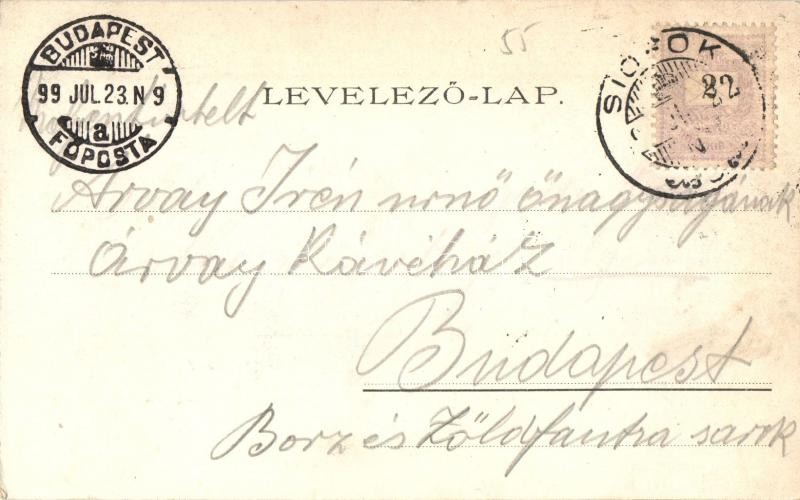 55
BUDAPEST
99 JUL. 23. N 9
a
FŐPOSTA
SIÓFOK
22
LEVELEZŐ-LAP.
Árvay Irén nőnő őnagyságának
Árvay Kávéház
Budapest
Borz és Zöldfautza sarok